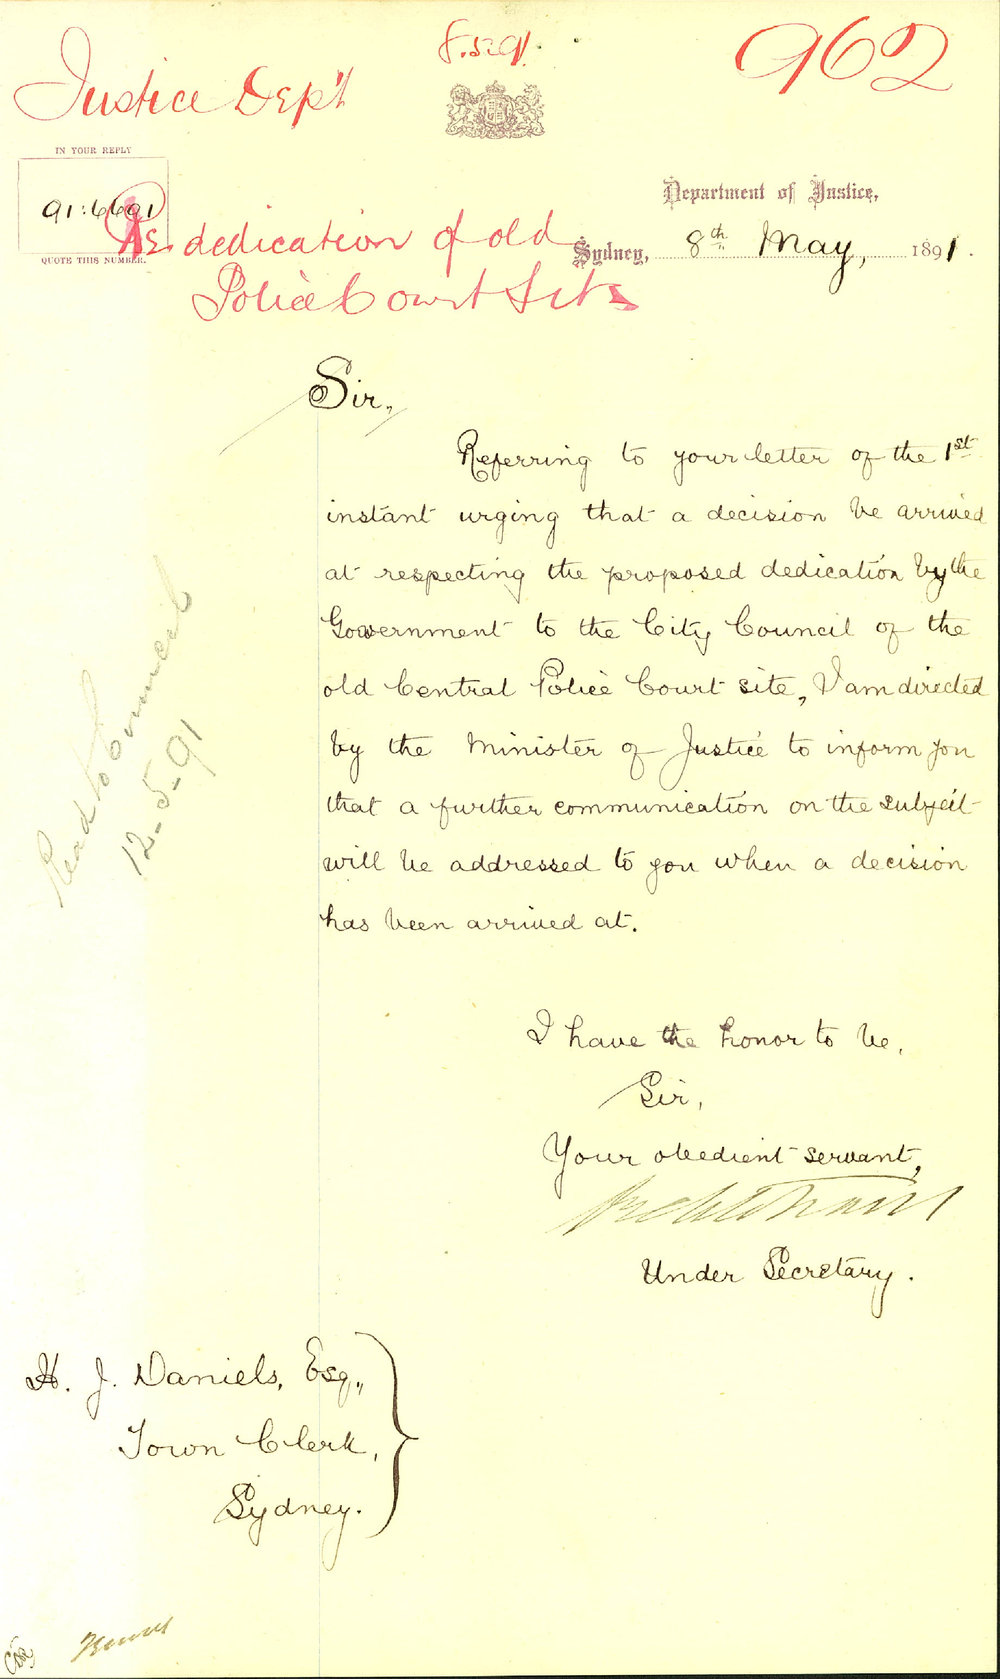 8.5.91.
962
Justice Dep't
IN YOUR REPLY
91:6691
QUOTE THIS NUMBER.
Re dedication of old
Police Court Site
Department of Justice,
Sydney, 8th May, 1891.
Sir,
Referring to your letter of the 1st
instant urging that a decision be arrived
at respecting the proposed dedication by the
Government to the City Council of the
old Central Police Court site, I am directed
by the Minister of Justice to inform you
that a further communication on the subject
will be addressed to you when a decision
has been arrived at.
Read to Council
12-5-91
I have the honor to be,
Sir,
Your obedient servant,
Under Secretary.
H. J. Daniels, Esq.,
Town Clerk,
Sydney.